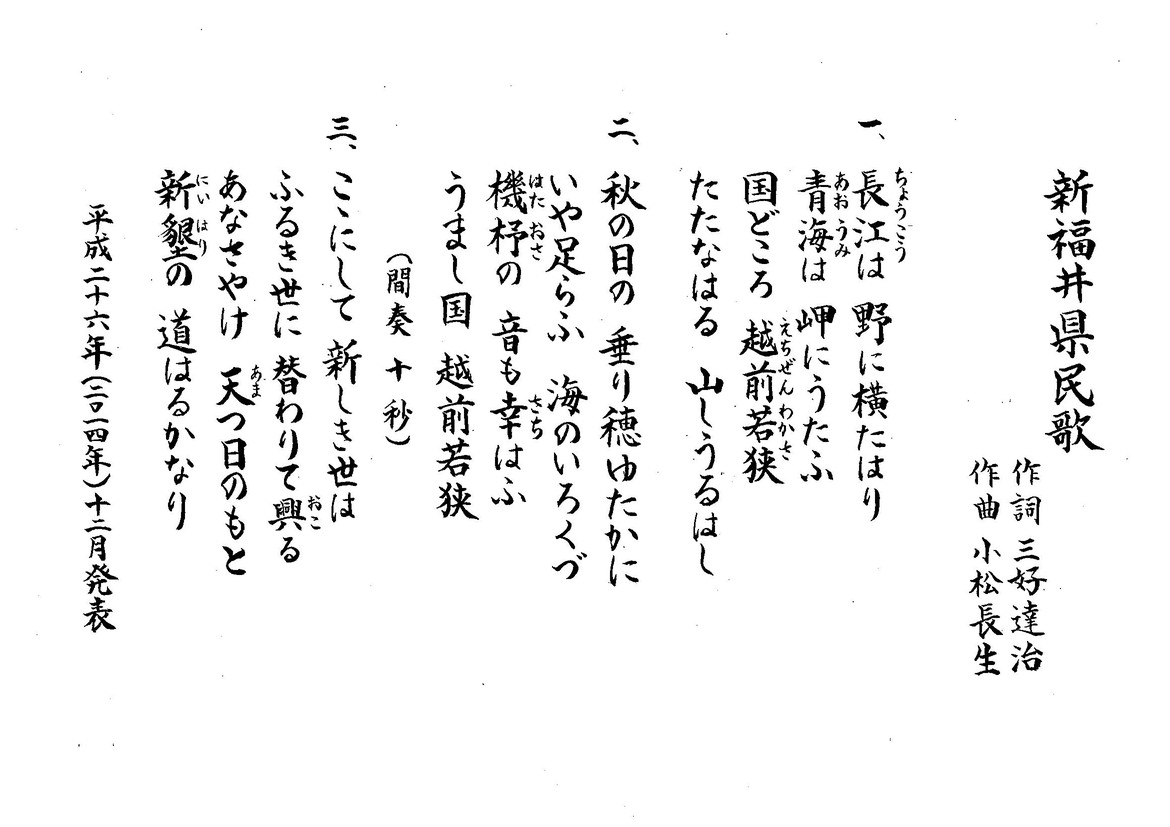 新福井県民歌
作詞 三好達治
作曲 小松長生
一、長江は 野に横たはり
青海は 岬にうたふ
国どころ 越前若狭
たたなはる 山しうるはし
二、秋の日の 垂り穂ゆたかに
いや足らふ 海のいろくづ
機杼の 音も幸はふ
うまし国 越前若狭
(間奏 十秒)
三、ここにして 新しき世は
ふるき世に 替わりて興る
あなさやけ 天つ日のもと
新墾の 道はるかなり
平成二十六年(二〇一四年)十二月発表